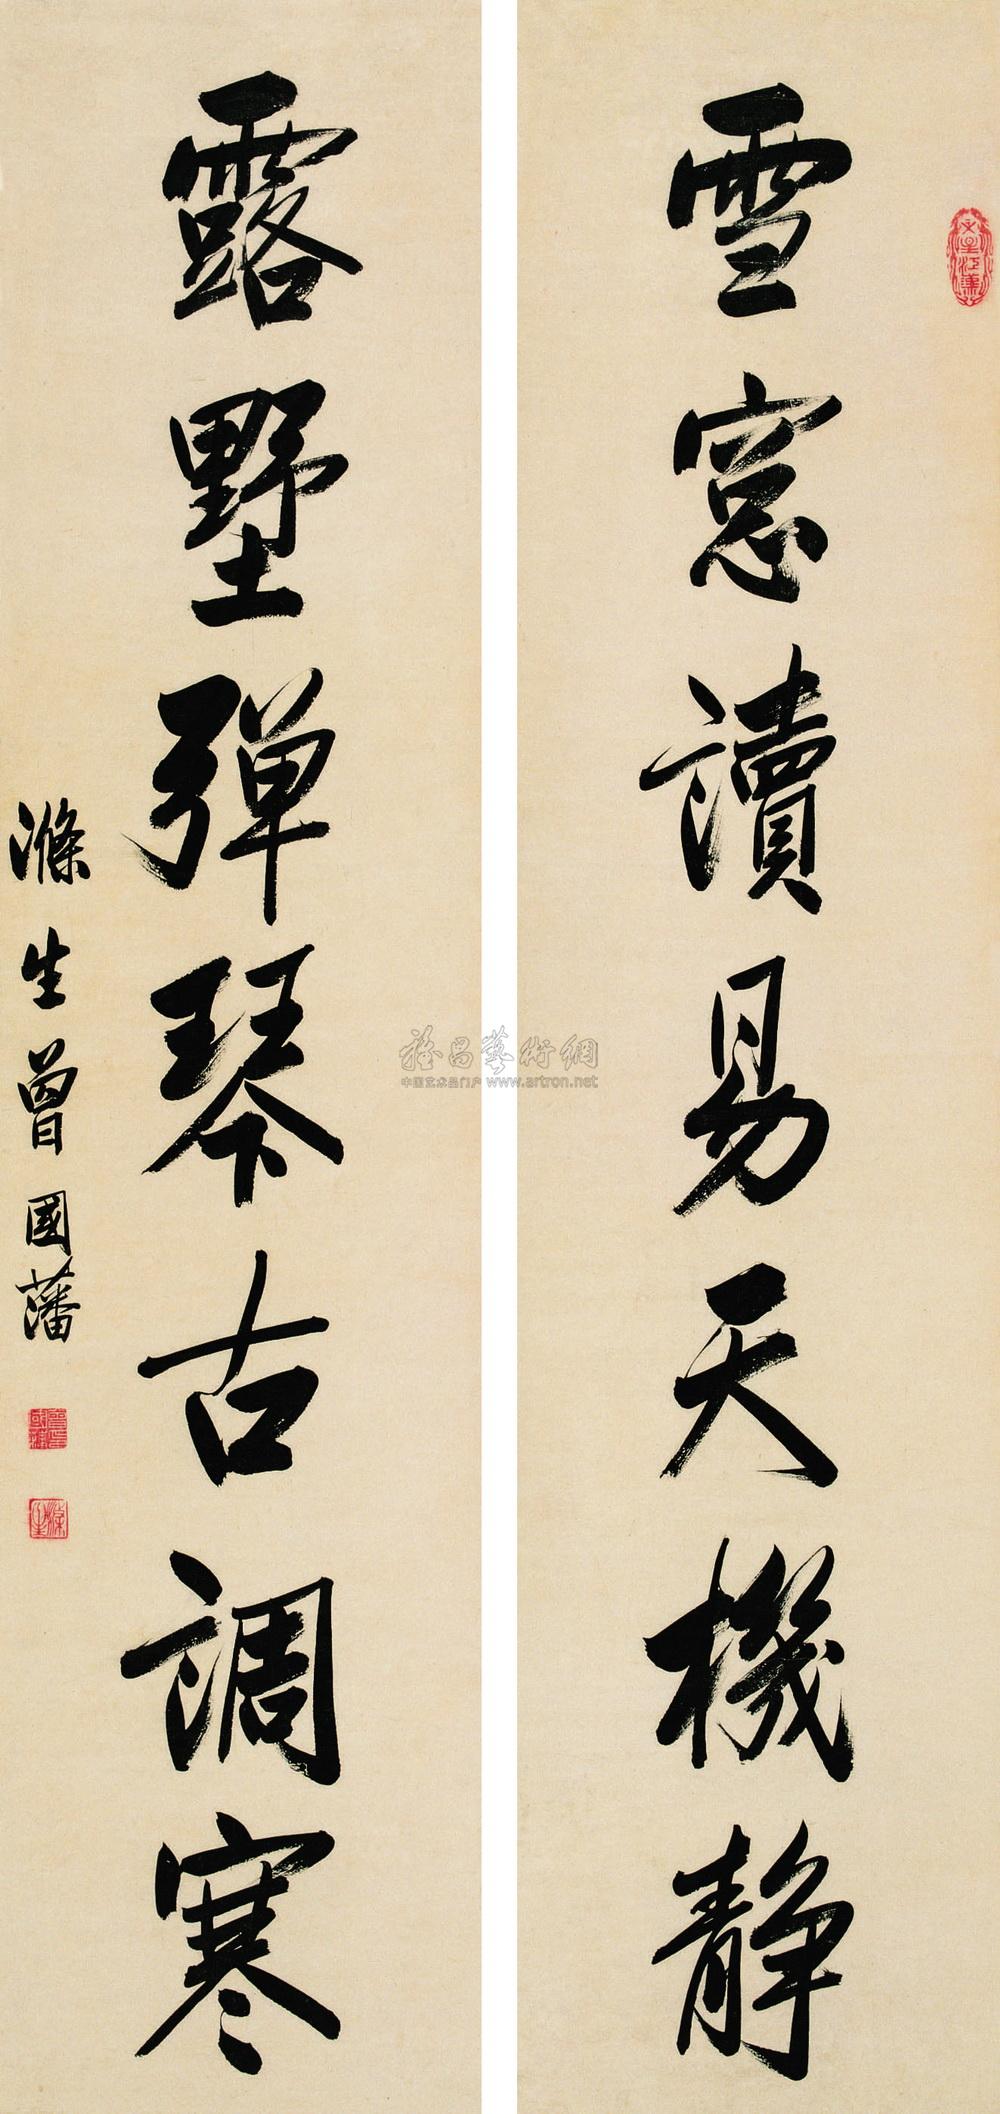 雪窓讀易天機静
露墅弹琴古調寒
滌生曾國藩
雅昌藝術網
中国艺术品门户 www.artron.net